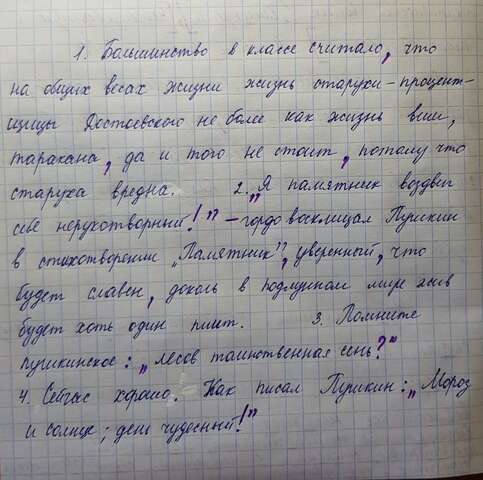 1. Большинство в классе считало, что
на общих весах жизни жизнь старухи-процент-
щицы Достоевского не более как жизнь вши,
таракана, да и того не стоит, потому что
старуха вредна. 2. „Я памятник воздвиг
себе нерукотворный!" – гордо восклицал Пушкин
в стихотворении „Памятник", уверенный, что
будет славен, доколь в подлунном мире жив
будет хоть один пиит. 3. Помните
пушкинское: „лесов таинственная сень?"
4. Сейчас хорошо. Как писал Пушкин: „Мороз
и солнце; день чудесный!"